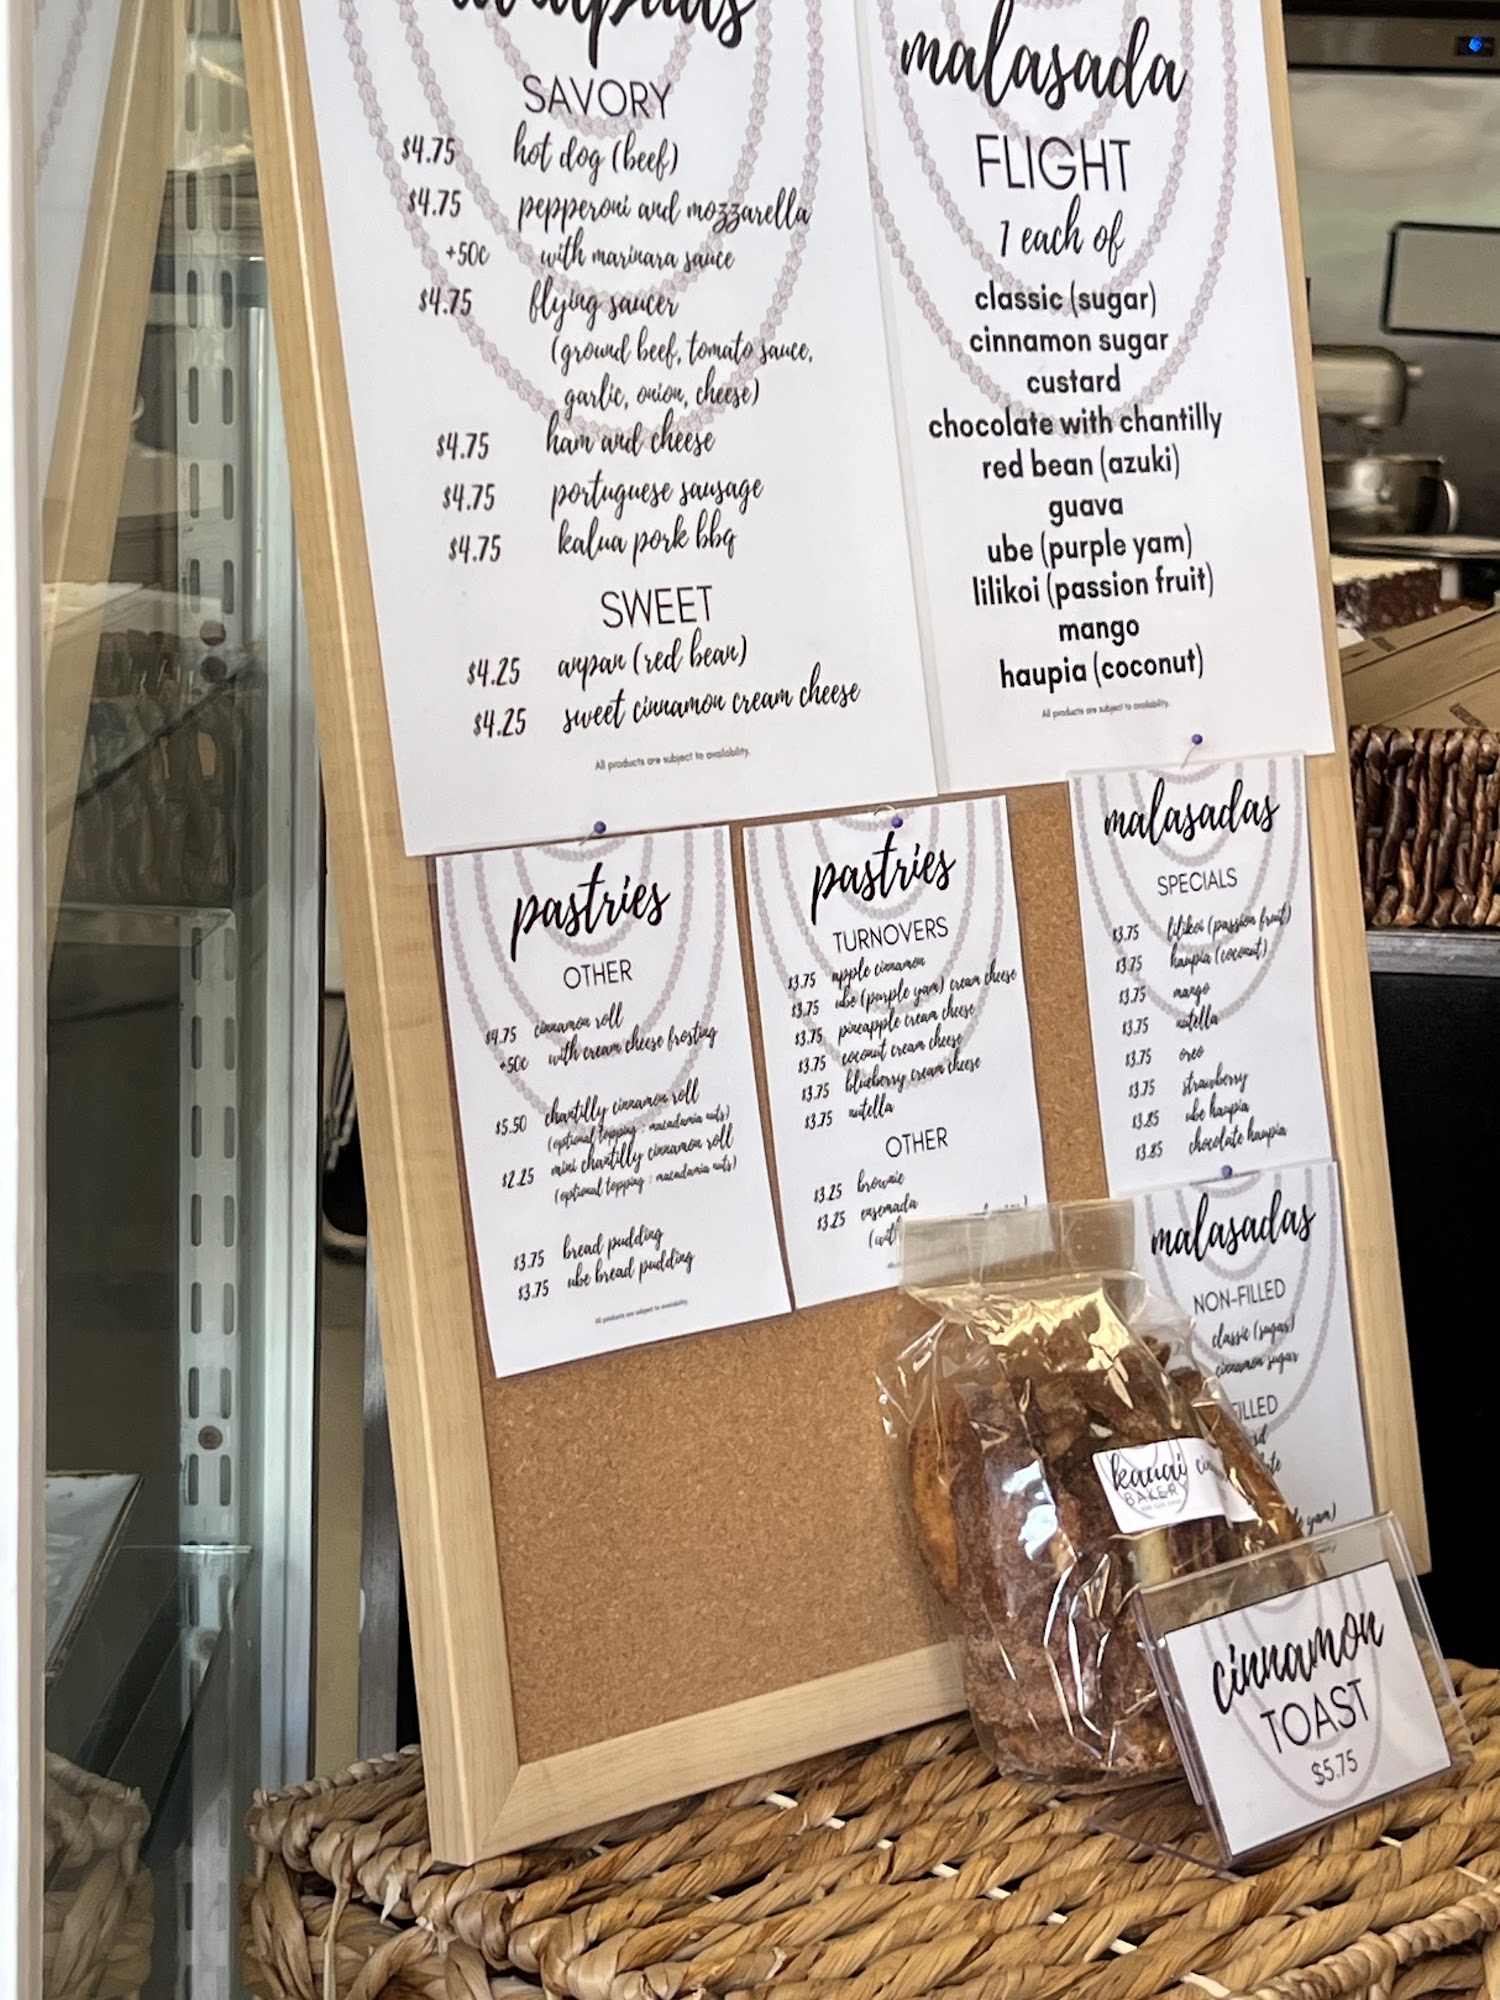 SAVORY
$4.75 hot dog (beef)
$4.75 pepperoni and mozzarella
+50¢ with marinara sauce
$4.75 flying saucer
(ground beef, tomato sauce,
garlic, onion, cheese)
$4.75 ham and cheese
$4.75 portuguese sausage
$4.75 kalua pork bbq
SWEET
$4.25 anpan (red bean)
$4.25 sweet cinnamon cream cheese
All products are subject to availability.
malasada
FLIGHT
1 each of
classic (sugar)
cinnamon sugar
custard
chocolate with chantilly
red bean (azuki)
guava
ube (purple yam)
lilikoi (passion fruit)
mango
haupia (coconut)
All products are subject to availability.
pastries
OTHER
$4.75 cinnamon roll
+50¢ with cream cheese frosting
$5.50 chantilly cinnamon roll
(optional topping : macadamia nuts)
$2.25 mini chantilly cinnamon roll
(optional topping : macadamia nuts)
$3.75 bread pudding
$3.75 ube bread pudding
All products are subject to availability.
pastries
TURNOVERS
$3.75 apple cinnamon
$3.75 ube (purple yam) cream cheese
$3.75 pineapple cream cheese
$3.75 coconut cream cheese
$3.75 blueberry cream cheese
$3.75 nutella
OTHER
$3.25 brownie
$3.25 ensemada
malasadas
SPECIALS
$3.75 lilikoi (passion fruit)
$3.75 haupia (coconut)
$3.75 mango
$3.75 nutella
$3.75 oreo
$3.75 strawberry
$3.85 ube haupia
$3.85 chocolate haupia
malasadas
NON-FILLED
classic (sugar)
cinnamon sugar
FILLED
yam)
kauai
BAKERY
cinnamon
TOAST
$5.75